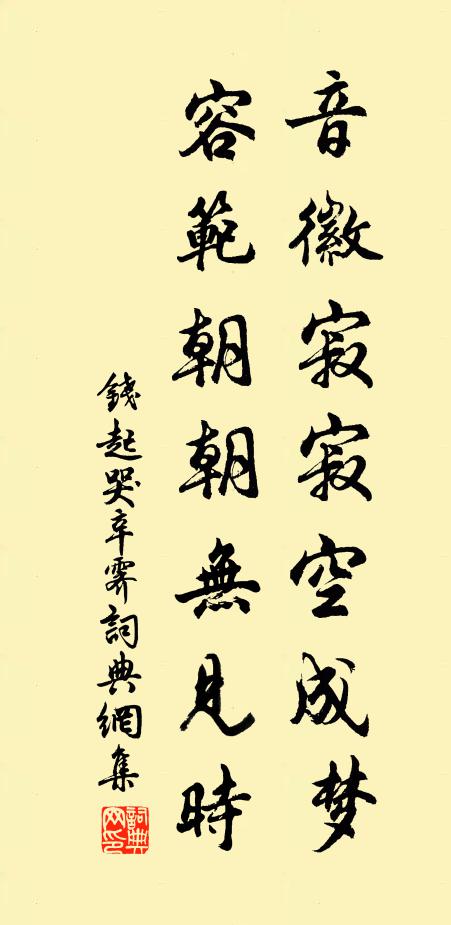 音徽寂寂空成梦
容範朝朝無見時
錢起哭辛霽詞典網集
詞典网印